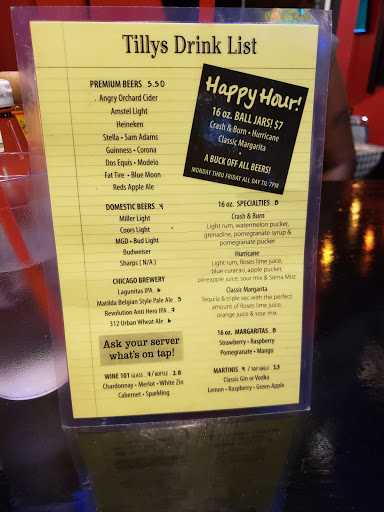 Tillys Drink List
PREMIUM BEERS 5.50
Angry Orchard Cider
Amstel Light
Heineken
Stella • Sam Adams
Guinness • Corona
Dos Equis • Modelo
Fat Tire • Blue Moon
Reds Apple Ale
Happy Hour!
16 oz. BALL JARS! $7
Crash & Burn • Hurricane
Classic Margarita
A BUCK OFF ALL BEERS!
MONDAY THRU FRIDAY ALL DAY TIL 7PM
DOMESTIC BEERS 4
Miller Light
Coors Light
MGD • Bud Light
Budweiser
Sharps ( N/A )
CHICAGO BREWERY
Lagunitas IPA
Matilda Belgian Style Pale Ale
Revolution Anti Hero IPA
312 Urban Wheat Ale
Ask your server
what's on tap!
WINE 101 GLASS / BOTTLE
Chardonnay • Merlot • White Zin
Cabernet • Sparkling
16 oz. SPECIALTIES 8
Crash & Burn
Light rum, watermelon pucker,
grenadine, pomegranate syrup &
pomegranate pucker
Hurricane
Light rum, Roses lime juice,
blue curacao, apple pucker,
pineapple juice, sour mix & Sierra Mist
Classic Margarita
Tequila & triple sec with the perfect
amount of Roses lime juice,
orange juice & sour mix
16 oz. MARGARITAS 8
Strawberry • Raspberry
Pomegranate • Mango
MARTINIS 9 / TOP SHELF
Classic Gin or Vodka
Lemon • Raspberry • Green Apple